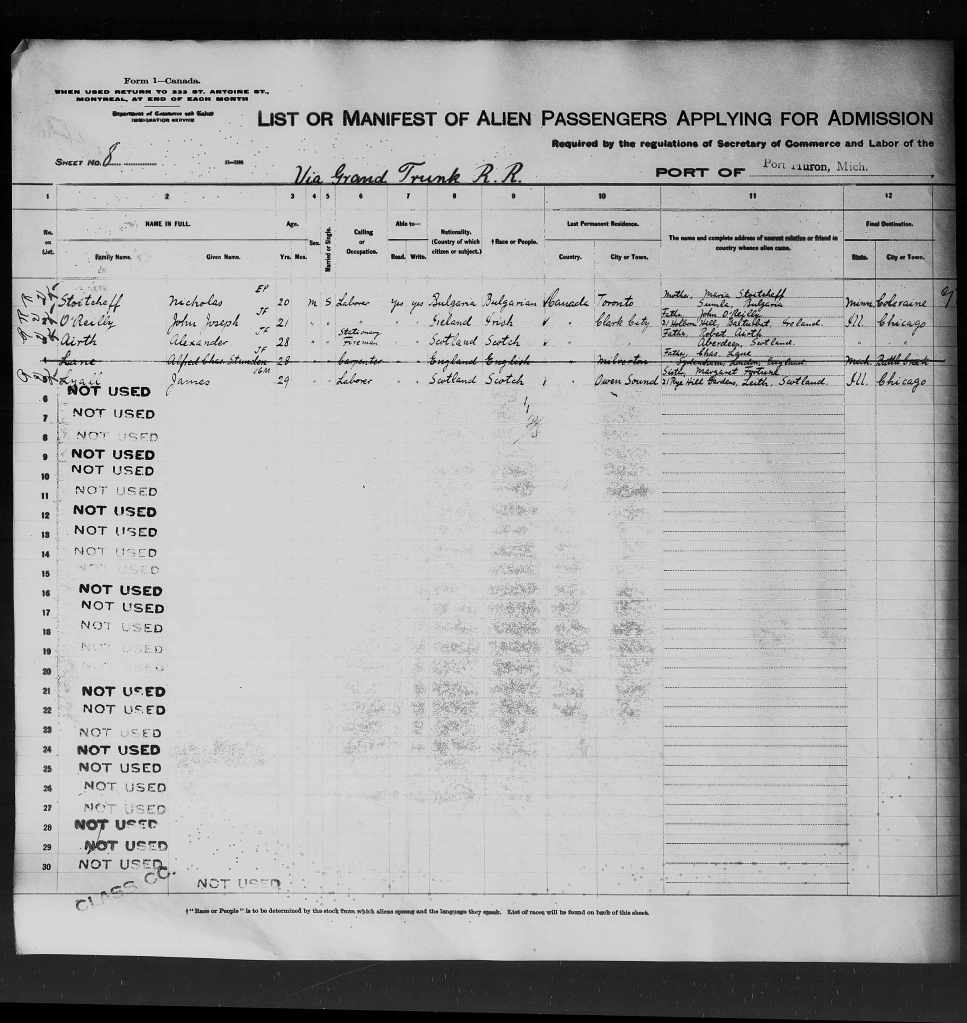 Form 1—Canada.
WHEN USED RETURN TO 333 ST. ANTOINE ST.,
MONTREAL, AT END OF EACH MONTH
Department of Commerce and Labor
IMMIGRATION SERVICE
LIST OR MANIFEST OF ALIEN PASSENGERS APPLYING FOR ADMISSION
Required by the regulations of Secretary of Commerce and Labor of the
SHEET NO. 8
Via Grand Trunk R. R.
PORT OF Port Huron, Mich.
1 2 3 4 5 6 7 8 9 10 11 12
No. on List.
NAME IN FULL.
Family Name. Given Name.
Age.
Yrs. Mos.
Sex.
Married or Single.
Calling or Occupation.
Able to—
Read. Write.
Nationality. (Country of which citizen or subject.)
† Race or People.
Last Permanent Residence.
Country. City or Town.
The name and complete address of nearest relative or friend in country whence alien came.
Final Destination.
State. City or Town.
Stoitcheff Nicholas EP 20 m S Laborer yes yes Bulgaria Bulgarian Canada Toronto Mother, Maria Stoitcheff Bulgaria Minn Coleraine
O'Reilly John Joseph JF 21 " " " " " Ireland Irish " Clark City Father, John O'Reilly 21 Holborn Hill, Ireland. Ill. Chicago
Airth Alexander JF 28 " " Stationary Fireman " " Scotland Scotch " " Father, Robert Airth Aberdeen, Scotland. " "
Lane Alfred Chas JF 28 " " Carpenter " " England English " Milverton Father, Chas. Lane London, England Mich Battle Creek
Lyall James 29 " " Laborer " " Scotland Scotch " Owen Sound Sister, Margaret Fortune 21 Rye Hill Gardens, Leith, Scotland. Ill. Chicago
6 NOT USED
7 NOT USED
8 NOT USED
9 NOT USED
10 NOT USED
11 NOT USED
12 NOT USED
13 NOT USED
14 NOT USED
15 NOT USED
16 NOT USED
17 NOT USED
18 NOT USED
19 NOT USED
20 NOT USED
21 NOT USED
22 NOT USED
23 NOT USED
24 NOT USED
25 NOT USED
26 NOT USED
27 NOT USED
28 NOT USED
29 NOT USED
30 NOT USED
CLASS CC.
NOT USED
† "Race or People" is to be determined by the stock from which aliens sprang and the language they speak. List of races will be found on back of this sheet.